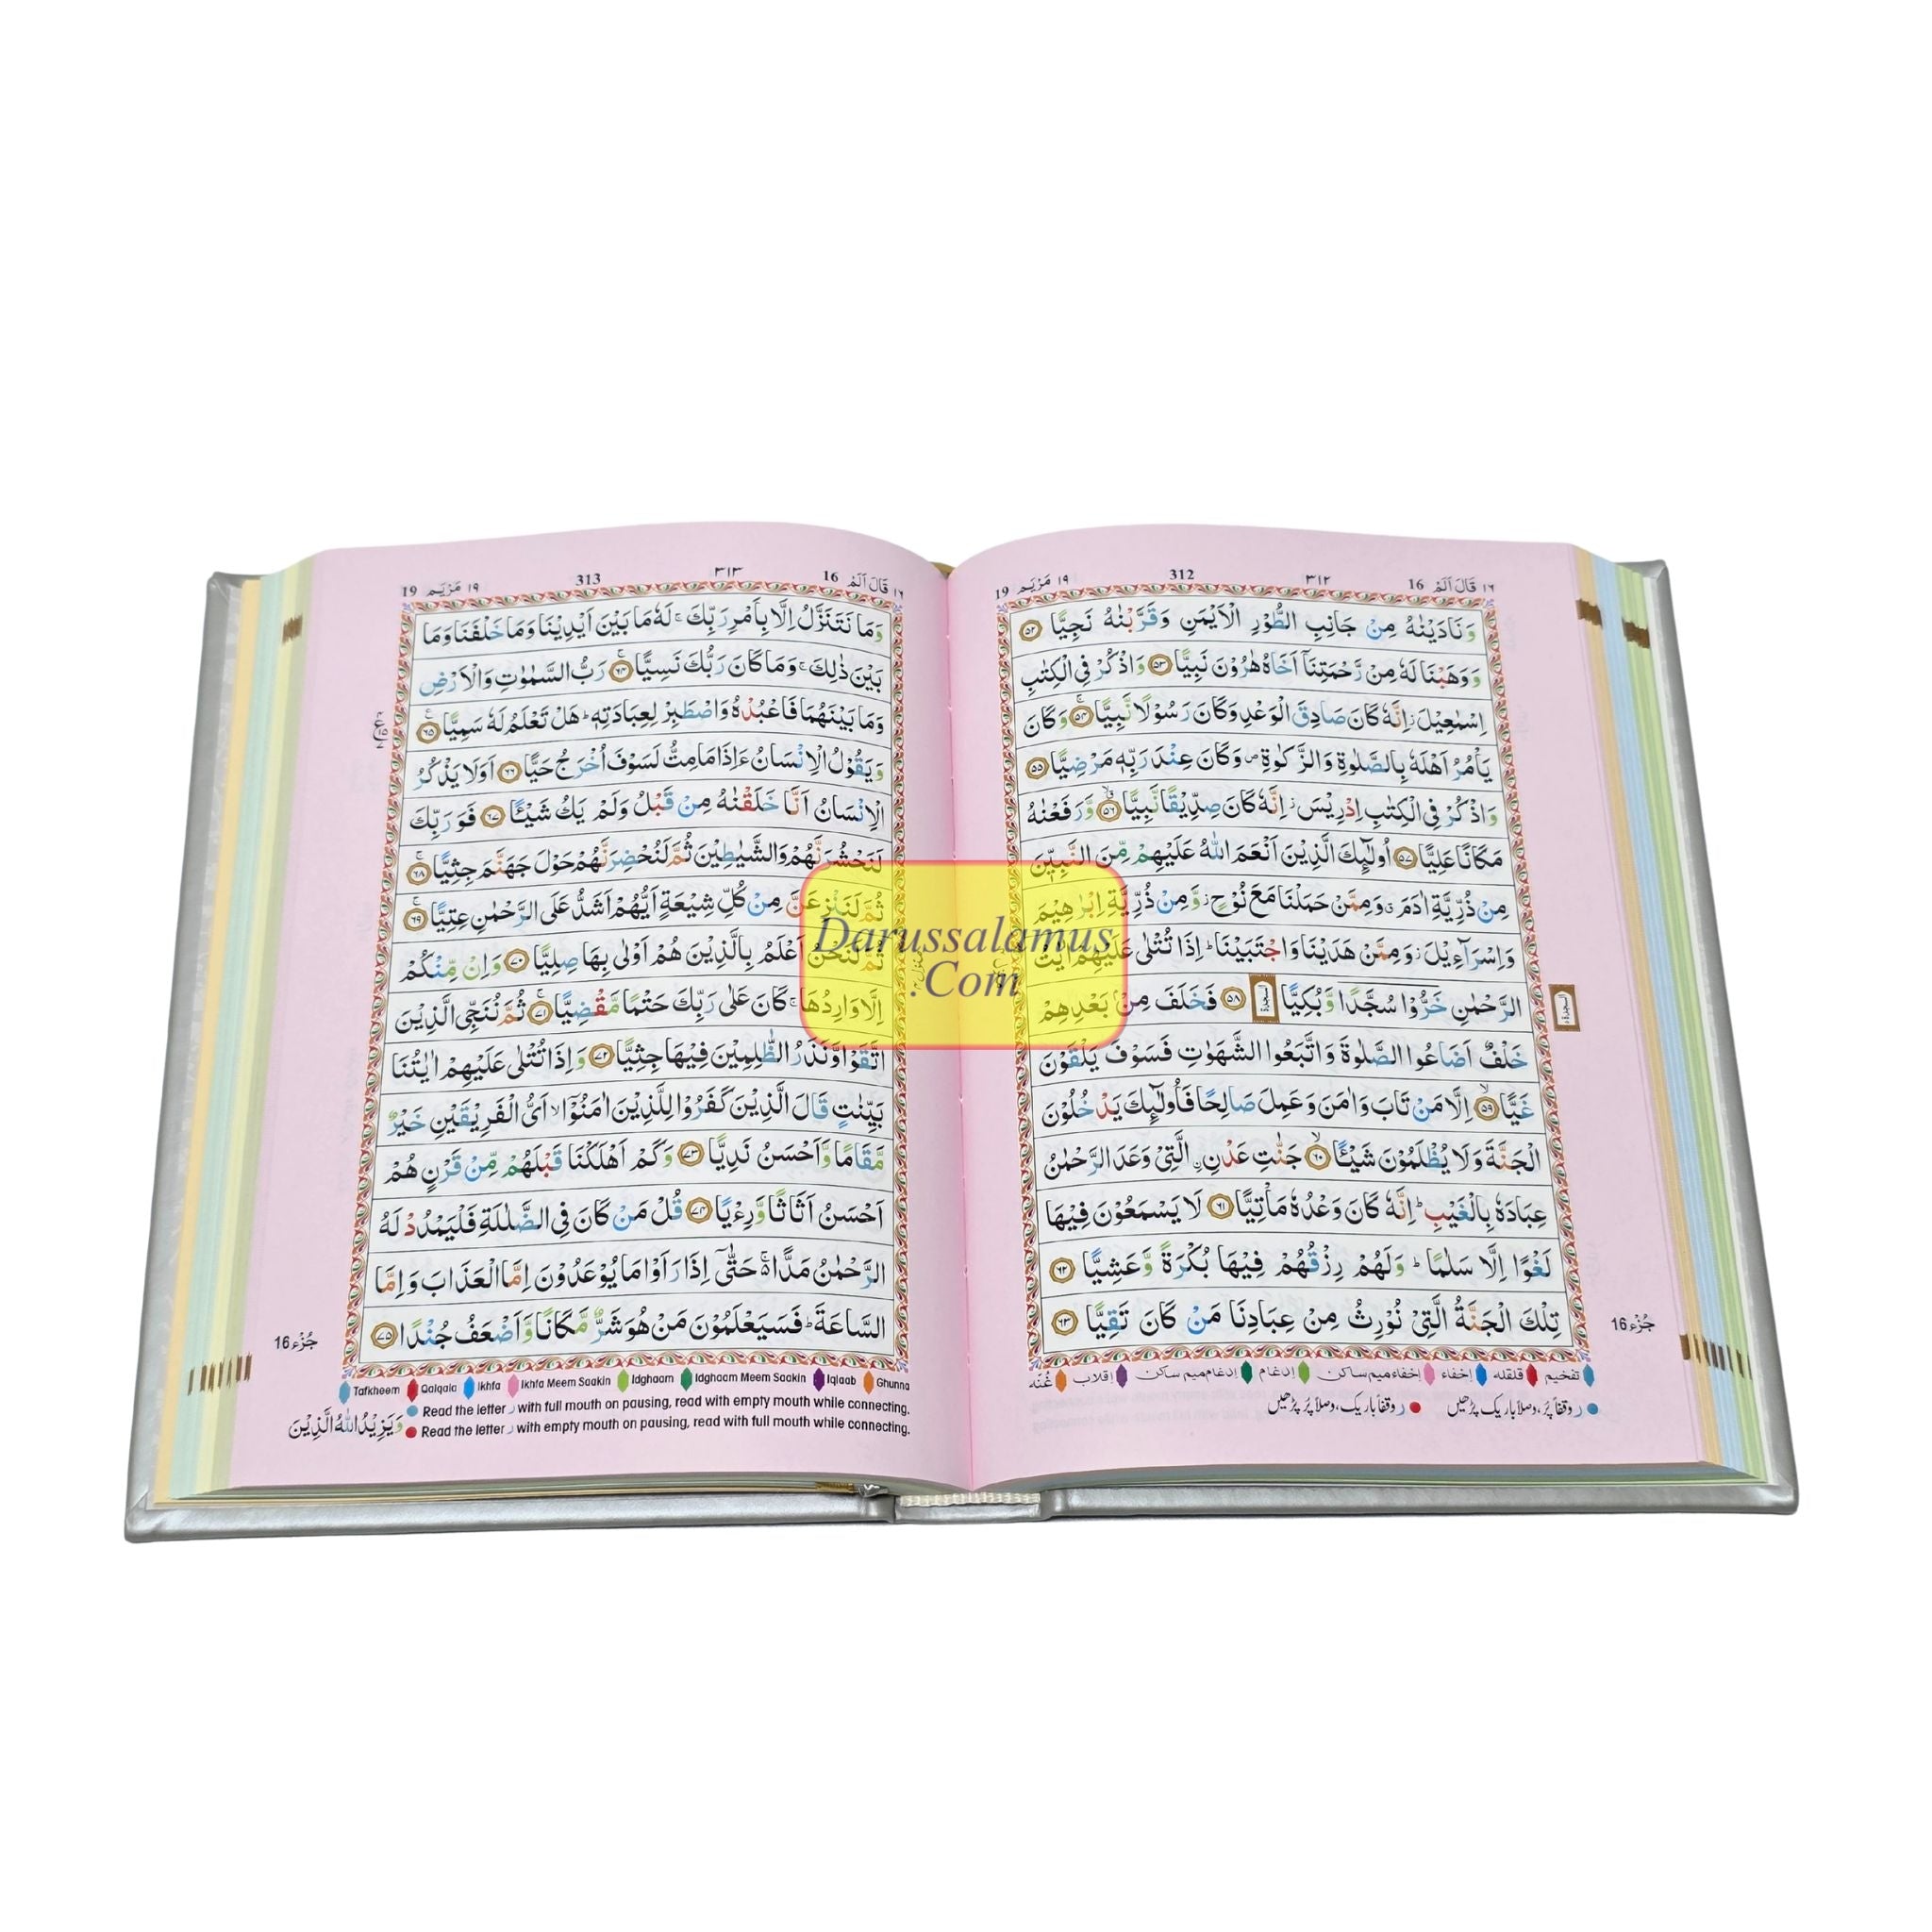 ١٦ قَالَ اَلَمْ 16
٣١٢
312
١٩ مَرْيَم 19
وَنَادَيْنٰهُ مِنْ جَانِبِ الطُّوْرِ الْاَيْمَنِ وَقَرَّبْنٰهُ نَجِيًّا ٥٢
وَوَهَبْنَا لَهٗ مِنْ رَّحْمَتِنَاۤ اَخَاهُ هٰرُوْنَ نَبِيًّا ٥٣ وَاذْكُرْ فِي الْكِتٰبِ
اِسْمٰعِيْلَ ؗ اِنَّهٗ كَانَ صَادِقَ الْوَعْدِ وَكَانَ رَسُوْلًا نَّبِيًّا ٥٤ وَكَانَ
يَاْمُرُ اَهْلَهٗ بِالصَّلٰوةِ وَالزَّكٰوةِ ۪ وَكَانَ عِنْدَ رَبِّهٖ مَرْضِيًّا ٥٥
وَاذْكُرْ فِي الْكِتٰبِ اِدْرِيْسَ ؗ اِنَّهٗ كَانَ صِدِّيْقًا نَّبِيًّا ٥٦ وَّرَفَعْنٰهُ
مَكَانًا عَلِيًّا ٥٧ اُولٰٓئِكَ الَّذِيْنَ اَنْعَمَ اللّٰهُ عَلَيْهِمْ مِّنَ النَّبِيّٖنَ
مِنْ ذُرِّيَّةِ اٰدَمَ ۗ وَمِمَّنْ حَمَلْنَا مَعَ نُوْحٍ ؗ وَّمِنْ ذُرِّيَّةِ اِبْرٰهِيْمَ
وَاِسْرَآءِيْلَ ؗ وَمِمَّنْ هَدَيْنَا وَاجْتَبَيْنَا ؕ اِذَا تُتْلٰى عَلَيْهِمْ اٰيٰتُ
الرَّحْمٰنِ خَرُّوْا سُجَّدًا وَّبُكِيًّا السجدة ٥٨ فَخَلَفَ مِنْۢ بَعْدِهِمْ
خَلْفٌ اَضَاعُوا الصَّلٰوةَ وَاتَّبَعُوا الشَّهَوٰتِ فَسَوْفَ يَلْقَوْنَ
غَيًّا ٥٩ اِلَّا مَنْ تَابَ وَاٰمَنَ وَعَمِلَ صَالِحًا فَاُولٰٓئِكَ يَدْخُلُوْنَ
الْجَنَّةَ وَلَا يُظْلَمُوْنَ شَيْـًٔا ٦٠ جَنّٰتِ عَدْنِ ِۨالَّتِيْ وَعَدَ الرَّحْمٰنُ
عِبَادَهٗ بِالْغَيْبِ ؕ اِنَّهٗ كَانَ وَعْدُهٗ مَاْتِيًّا ٦١ لَا يَسْمَعُوْنَ فِيْهَا
لَغْوًا اِلَّا سَلٰمًا ؕ وَلَهُمْ رِزْقُهُمْ فِيْهَا بُكْرَةً وَّعَشِيًّا ٦٢
تِلْكَ الْجَنَّةُ الَّتِيْ نُوْرِثُ مِنْ عِبَادِنَا مَنْ كَانَ تَقِيًّا ٦٣
السجدة
جُزْء 16
تفخیم قلقله إخفاء إخفاء میم ساکن إدغام إدغام میم ساکن إقلاب غُنّه
ر وقفاً پُر، وصلاً باریک پڑھیں ر وقفاً باریک، وصلاً پُر پڑھیں
١٦ قَالَ اَلَمْ 16
٣١٣
313
١٩ مَرْيَم 19
وَمَا نَتَنَزَّلُ اِلَّا بِاَمْرِ رَبِّكَ ۚ لَهٗ مَا بَيْنَ اَيْدِيْنَا وَمَا خَلْفَنَا وَمَا
بَيْنَ ذٰلِكَ ۚ وَمَا كَانَ رَبُّكَ نَسِيًّا ٦٤ رَبُّ السَّمٰوٰتِ وَالْاَرْضِ
وَمَا بَيْنَهُمَا فَاعْبُدْهُ وَاصْطَبِرْ لِعِبَادَتِهٖ ؕ هَلْ تَعْلَمُ لَهٗ سَمِيًّا ٦٥
وَيَقُوْلُ الْاِنْسَانُ ءَاِذَا مَا مِتُّ لَسَوْفَ اُخْرَجُ حَيًّا ٦٦ اَوَلَا يَذْكُرُ
الْاِنْسَانُ اَنَّا خَلَقْنٰهُ مِنْ قَبْلُ وَلَمْ يَكُ شَيْـًٔا ٦٧ فَوَرَبِّكَ
لَنَحْشُرَنَّهُمْ وَالشَّيٰطِيْنَ ثُمَّ لَنُحْضِرَنَّهُمْ حَوْلَ جَهَنَّمَ جِثِيًّا ٦٨
ثُمَّ لَنَنْزِعَنَّ مِنْ كُلِّ شِيْعَةٍ اَيُّهُمْ اَشَدُّ عَلَى الرَّحْمٰنِ عِتِيًّا ٦٩
ثُمَّ لَنَحْنُ اَعْلَمُ بِالَّذِيْنَ هُمْ اَوْلٰى بِهَا صِلِيًّا ٧٠ وَاِنْ مِّنْكُمْ
اِلَّا وَارِدُهَا ۚ كَانَ عَلٰى رَبِّكَ حَتْمًا مَّقْضِيًّا ٧١ ثُمَّ نُنَجِّي الَّذِيْنَ
اتَّقَوْا وَّنَذَرُ الظّٰلِمِيْنَ فِيْهَا جِثِيًّا ٧٢ وَاِذَا تُتْلٰى عَلَيْهِمْ اٰيٰتُنَا
بَيِّنٰتٍ قَالَ الَّذِيْنَ كَفَرُوْا لِلَّذِيْنَ اٰمَنُوْۤا ۙ اَيُّ الْفَرِيْقَيْنِ خَيْرٌ
مَّقَامًا وَّاَحْسَنُ نَدِيًّا ٧٣ وَكَمْ اَهْلَكْنَا قَبْلَهُمْ مِّنْ قَرْنٍ هُمْ
اَحْسَنُ اَثَاثًا وَّرِءْيًا ٧٤ قُلْ مَنْ كَانَ فِي الضَّلٰلَةِ فَلْيَمْدُدْ لَهُ
الرَّحْمٰنُ مَدًّا ۚ حَتّٰۤى اِذَا رَاَوْا مَا يُوْعَدُوْنَ اِمَّا الْعَذَابَ وَاِمَّا
السَّاعَةَ ؕ فَسَيَعْلَمُوْنَ مَنْ هُوَ شَرٌّ مَّكَانًا وَّاَضْعَفُ جُنْدًا ٧٥
جُزْء 16
Tafkheem Qalqala Ikhfa Ikhfa Meem Saakin Idghaam Idghaam Meem Saakin Iqlaab Ghunna
Read the letter ر with full mouth on pausing, read with empty mouth while connecting.
Read the letter ر with empty mouth on pausing, read with full mouth while connecting.
وَيَزِيْدُ اللّٰهُ الَّذِيْنَ
Darussalamus
.Com